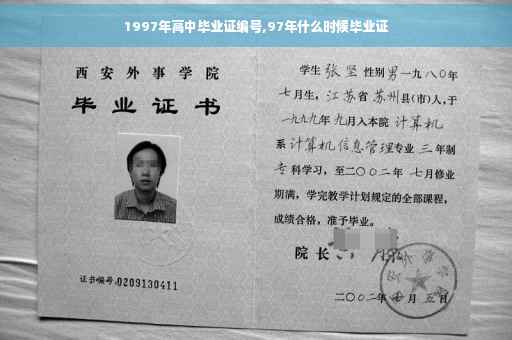 1997年高中毕业证编号,97年什么时候毕业证
西安外事学院
毕业证书
证书编号:0209130411
学生 张坚 性别男一九八0年
七月生，江苏省苏州县(市)人,于
一九九九年九月入本院 计算机
系计算机信息管理专业 三 年制
专科学习，至二〇〇二年 七月修业
期满，学完教学计划规定的全部课程，
成绩合格，准予毕业。
院长
二〇〇二年 月五日